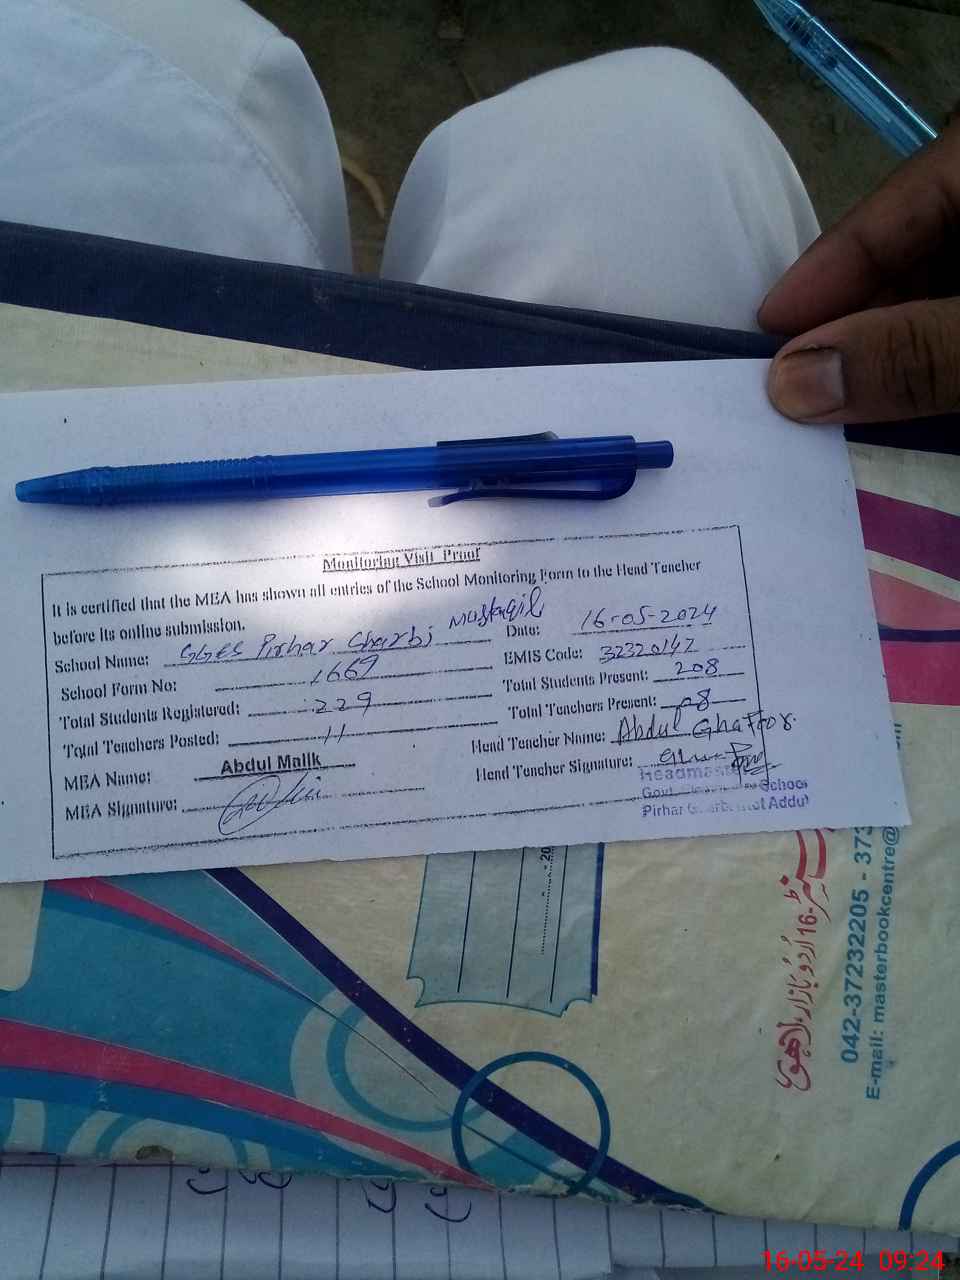 Monitoring Visit Proof
It is certified that the MEA has shown all entries of the School Monitoring Form to the Head Teacher
before its online submission.
School Name: GGES Pirhar Gharbi Mustaqil Date: 16-05-2024
School Form No: 1669 EMIS Code: 32320142
Total Students Registered: 229 Total Students Present: 208
Total Teachers Posted: 11 Total Teachers Present: 08
MEA Name: Abdul Malik Head Teacher Name: Abdul Ghafoor
MEA Signature: Head Teacher Signature:
Headmaster
Govt. School
Pirhar Addu
20
لاہور
اُردو بازار
16-
042-37232205 - 373
E-mail: masterbookcentre@
16-05-24 09:24